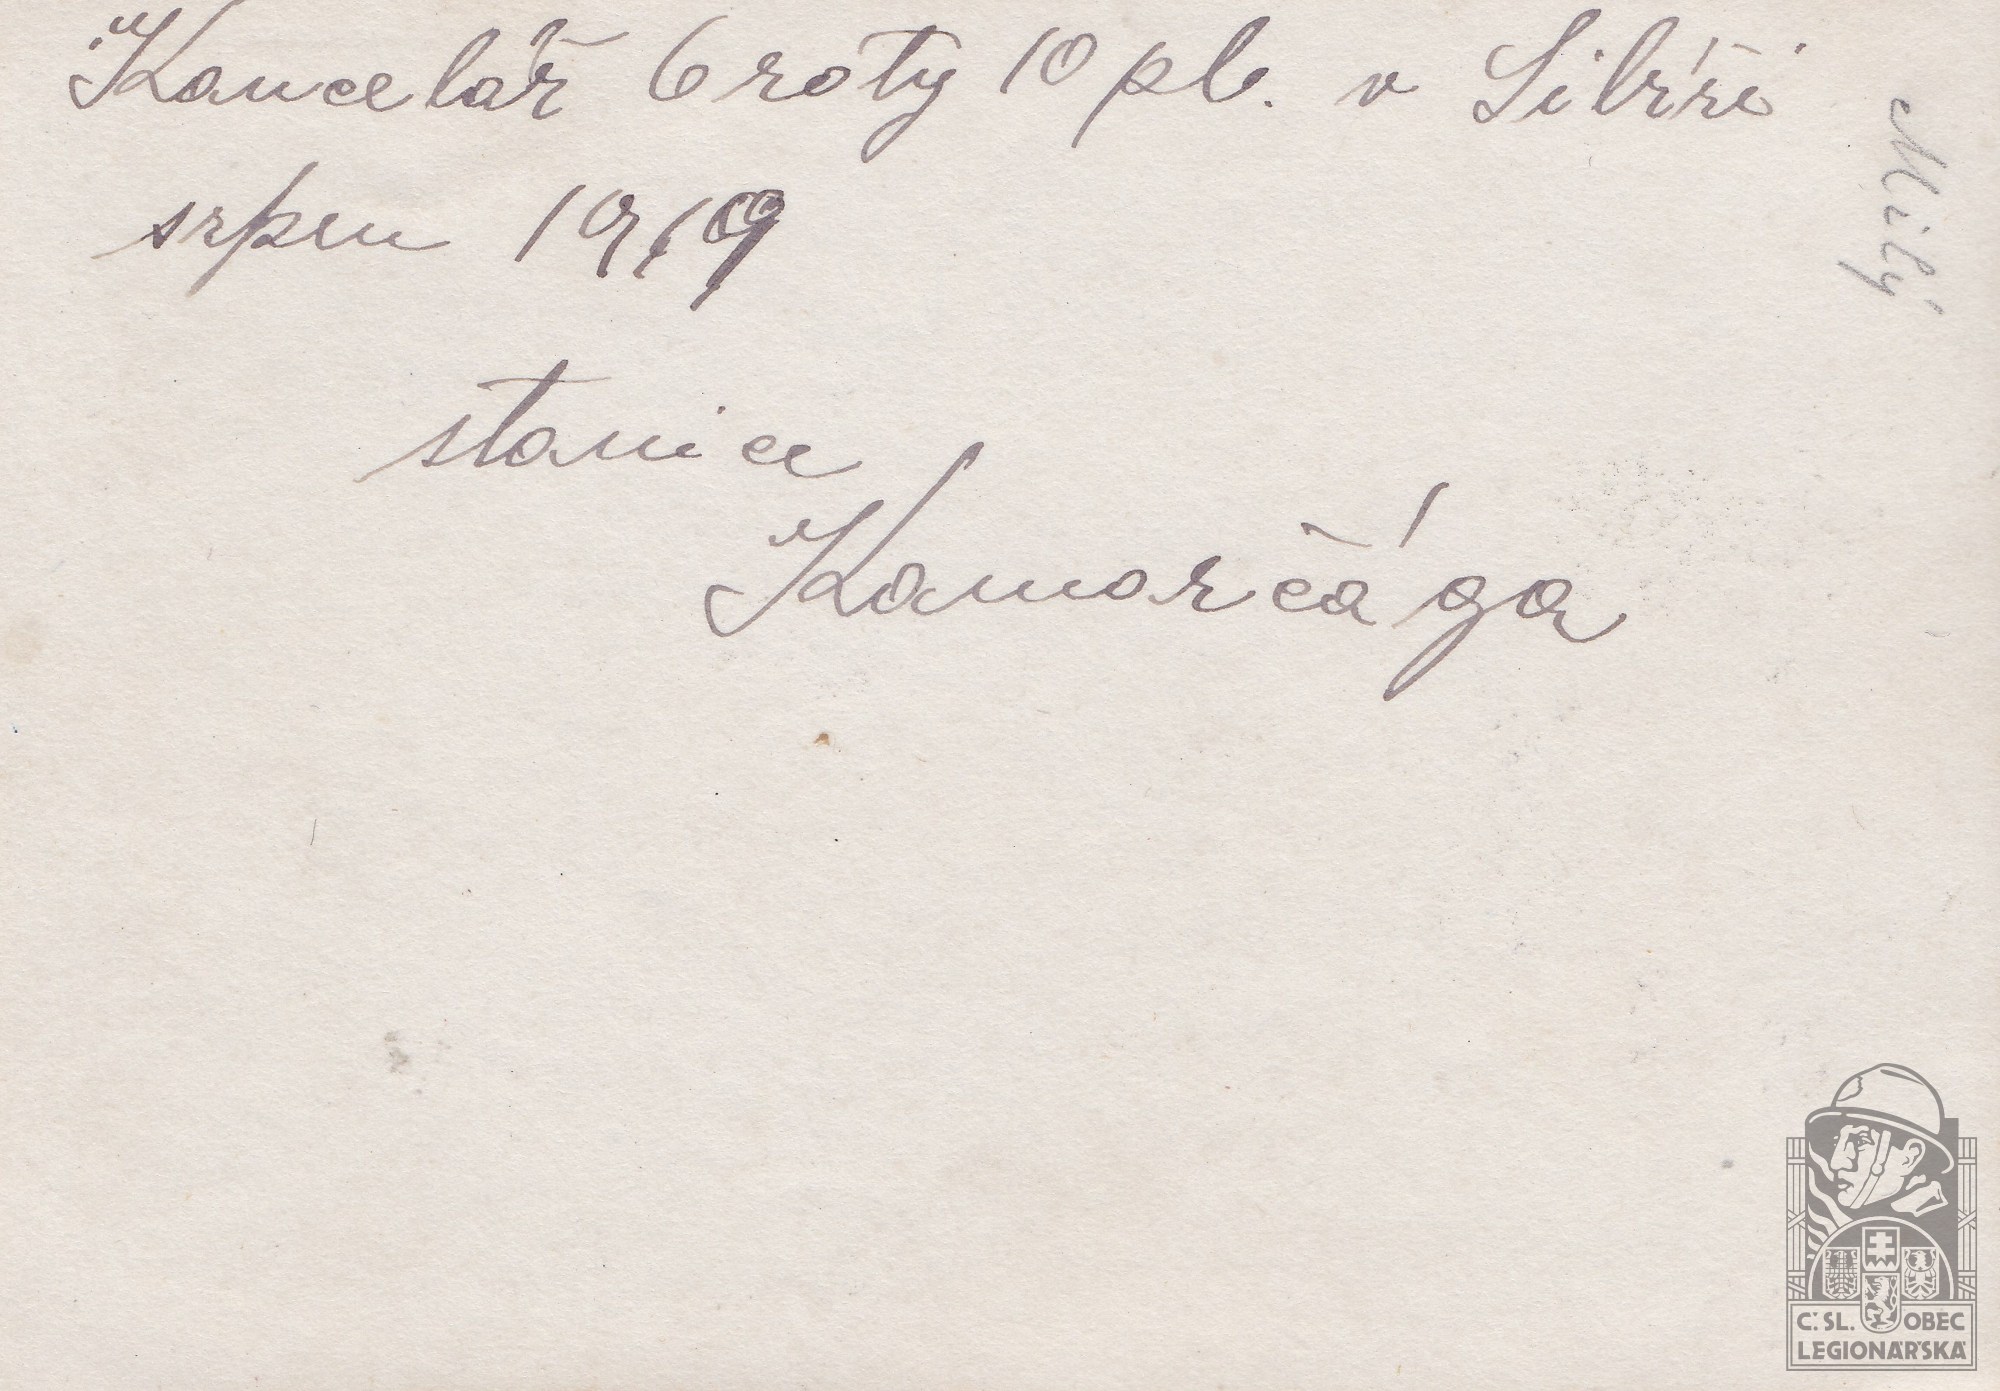 Kancelář 6 roty 10 pl. v Sibíři
srpen 1919
stanice
Kamorčága
Milý
Č.SL. OBEC
LEGIONÁŘSKÁ